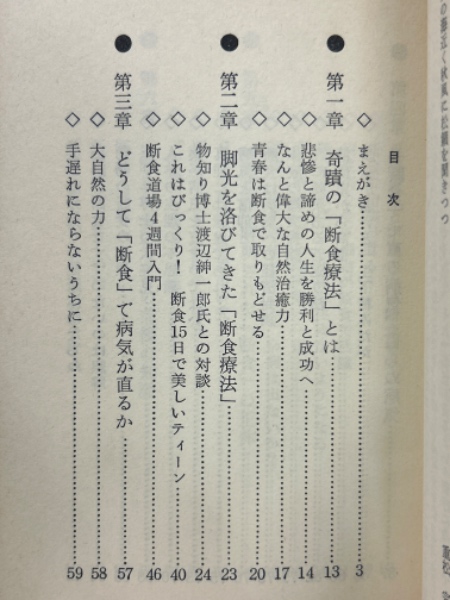 の海近く秋風に松籟を聞きつつ
目次
◇ まえがき……3
● 第一章 奇蹟の「断食療法」とは……13
◇ 悲惨と諦めの人生を勝利と成功へ……14
◇ なんと偉大な自然治癒力……17
◇ 青春は断食で取りもどせる……20
● 第二章 脚光を洛びてきた「断食療法」……23
◇ 物知り博士渡辺紳一郎氏との対談……24
◇ これはびっくり! 断食15日で美しいティーン……40
◇ 断食道場4週間入門……46
● 第三章 どうして「断食」で病気が直るか……57
◇ 大自然の力……58
◇ 手遅れにならないうちに……59